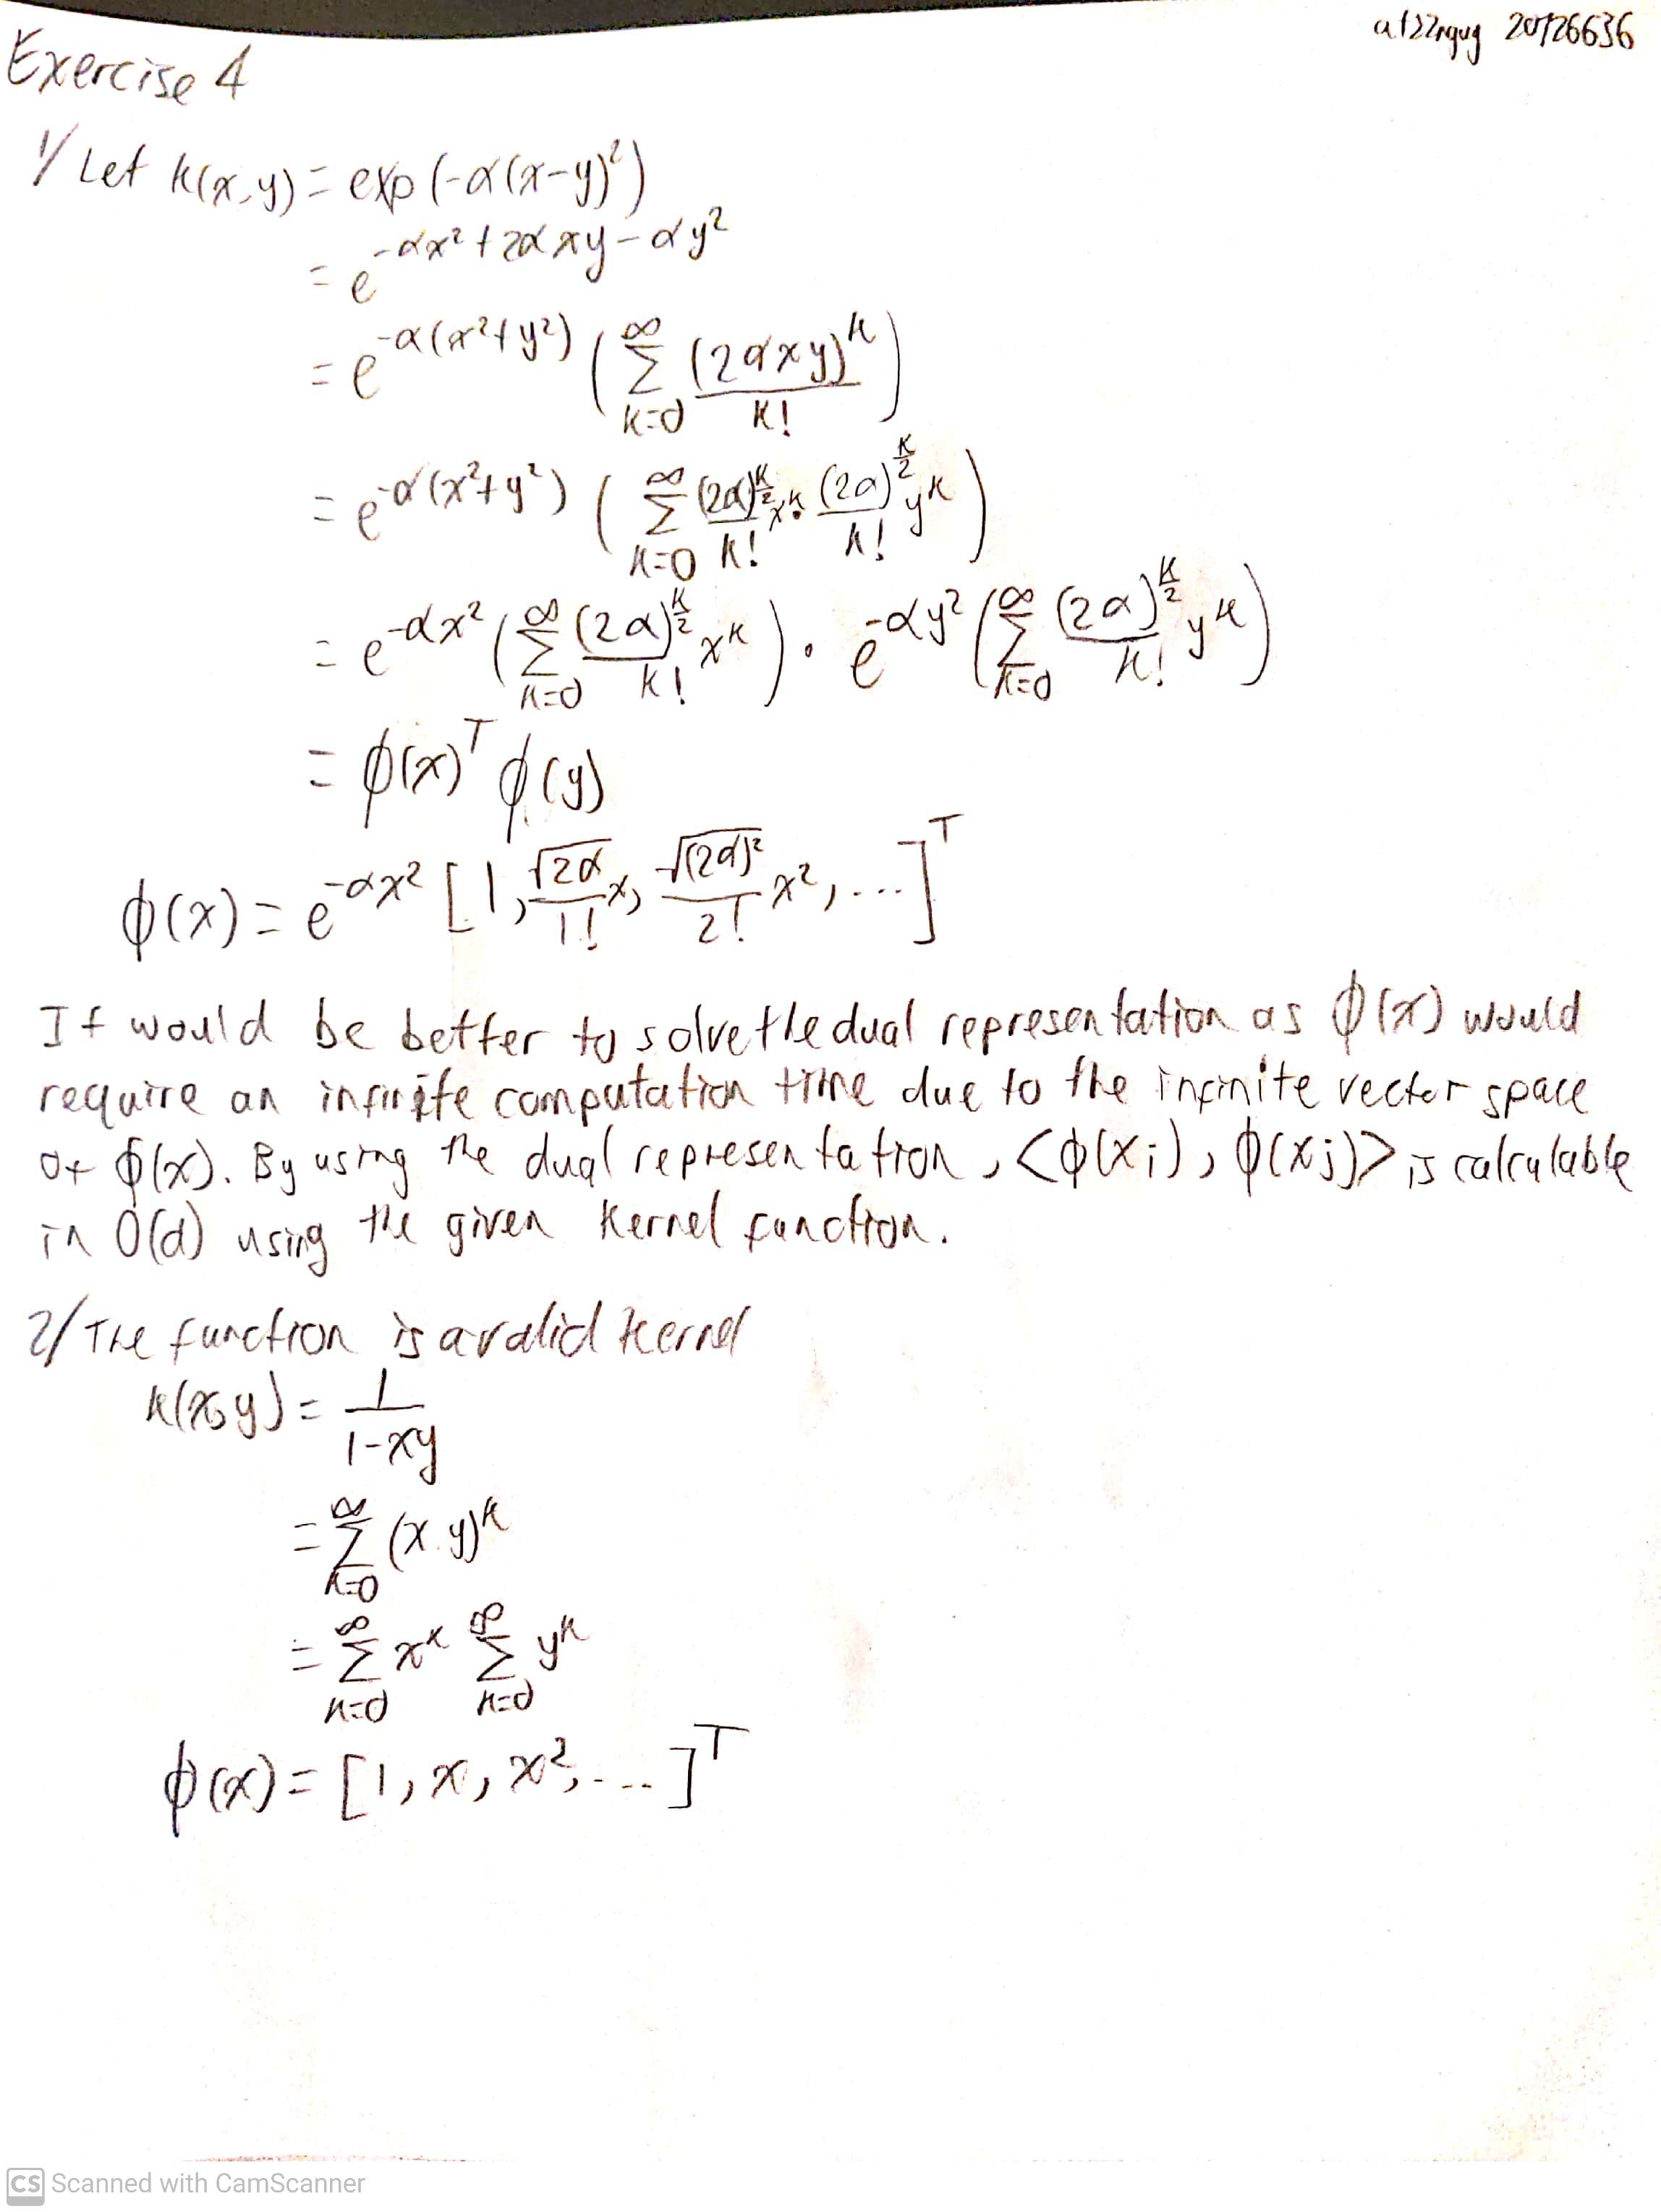 20726636
Exercise 4
1/ Let k(x,y) = exp(-α(x-y)²)
= e^{-αx² + 2αxy - αy²}
= e^{-α(x²+y²)} ( ∑_{k=0}^{∞} (2αxy)^k / k! )
= e^{-α(x²+y²)} ( ∑_{k=0}^{∞} (2α)^{k/2} / k! x^k · (2α)^{k/2} / k! y^k )
= e^{-αx²} ( ∑_{k=0}^{∞} (2α)^{k/2} / k! x^k ) · e^{-αy²} ( ∑_{k=0}^{∞} (2α)^{k/2} / k! y^k )
= ϕ(x)^T ϕ(y)
ϕ(x) = e^{-αx²} [1, √2α / 1! x, √(2α)² / 2! x², ...]^T
It would be better to solve the dual representation as ϕ(x) would
require an infinite computation time due to the infinite vector space
of ϕ(x). By using the dual representation, <ϕ(xi), ϕ(xj)> is calculable
in O(d) using the given kernel function.
2/ The function is a valid kernel
k(x,y) = 1 / 1-xy
= ∑_{k=0}^{∞} (x.y)^k
= ∑_{k=0}^{∞} x^k ∑_{k=0}^{∞} y^k
ϕ(x) = [1, x, x², ...]^T
CS Scanned with CamScanner